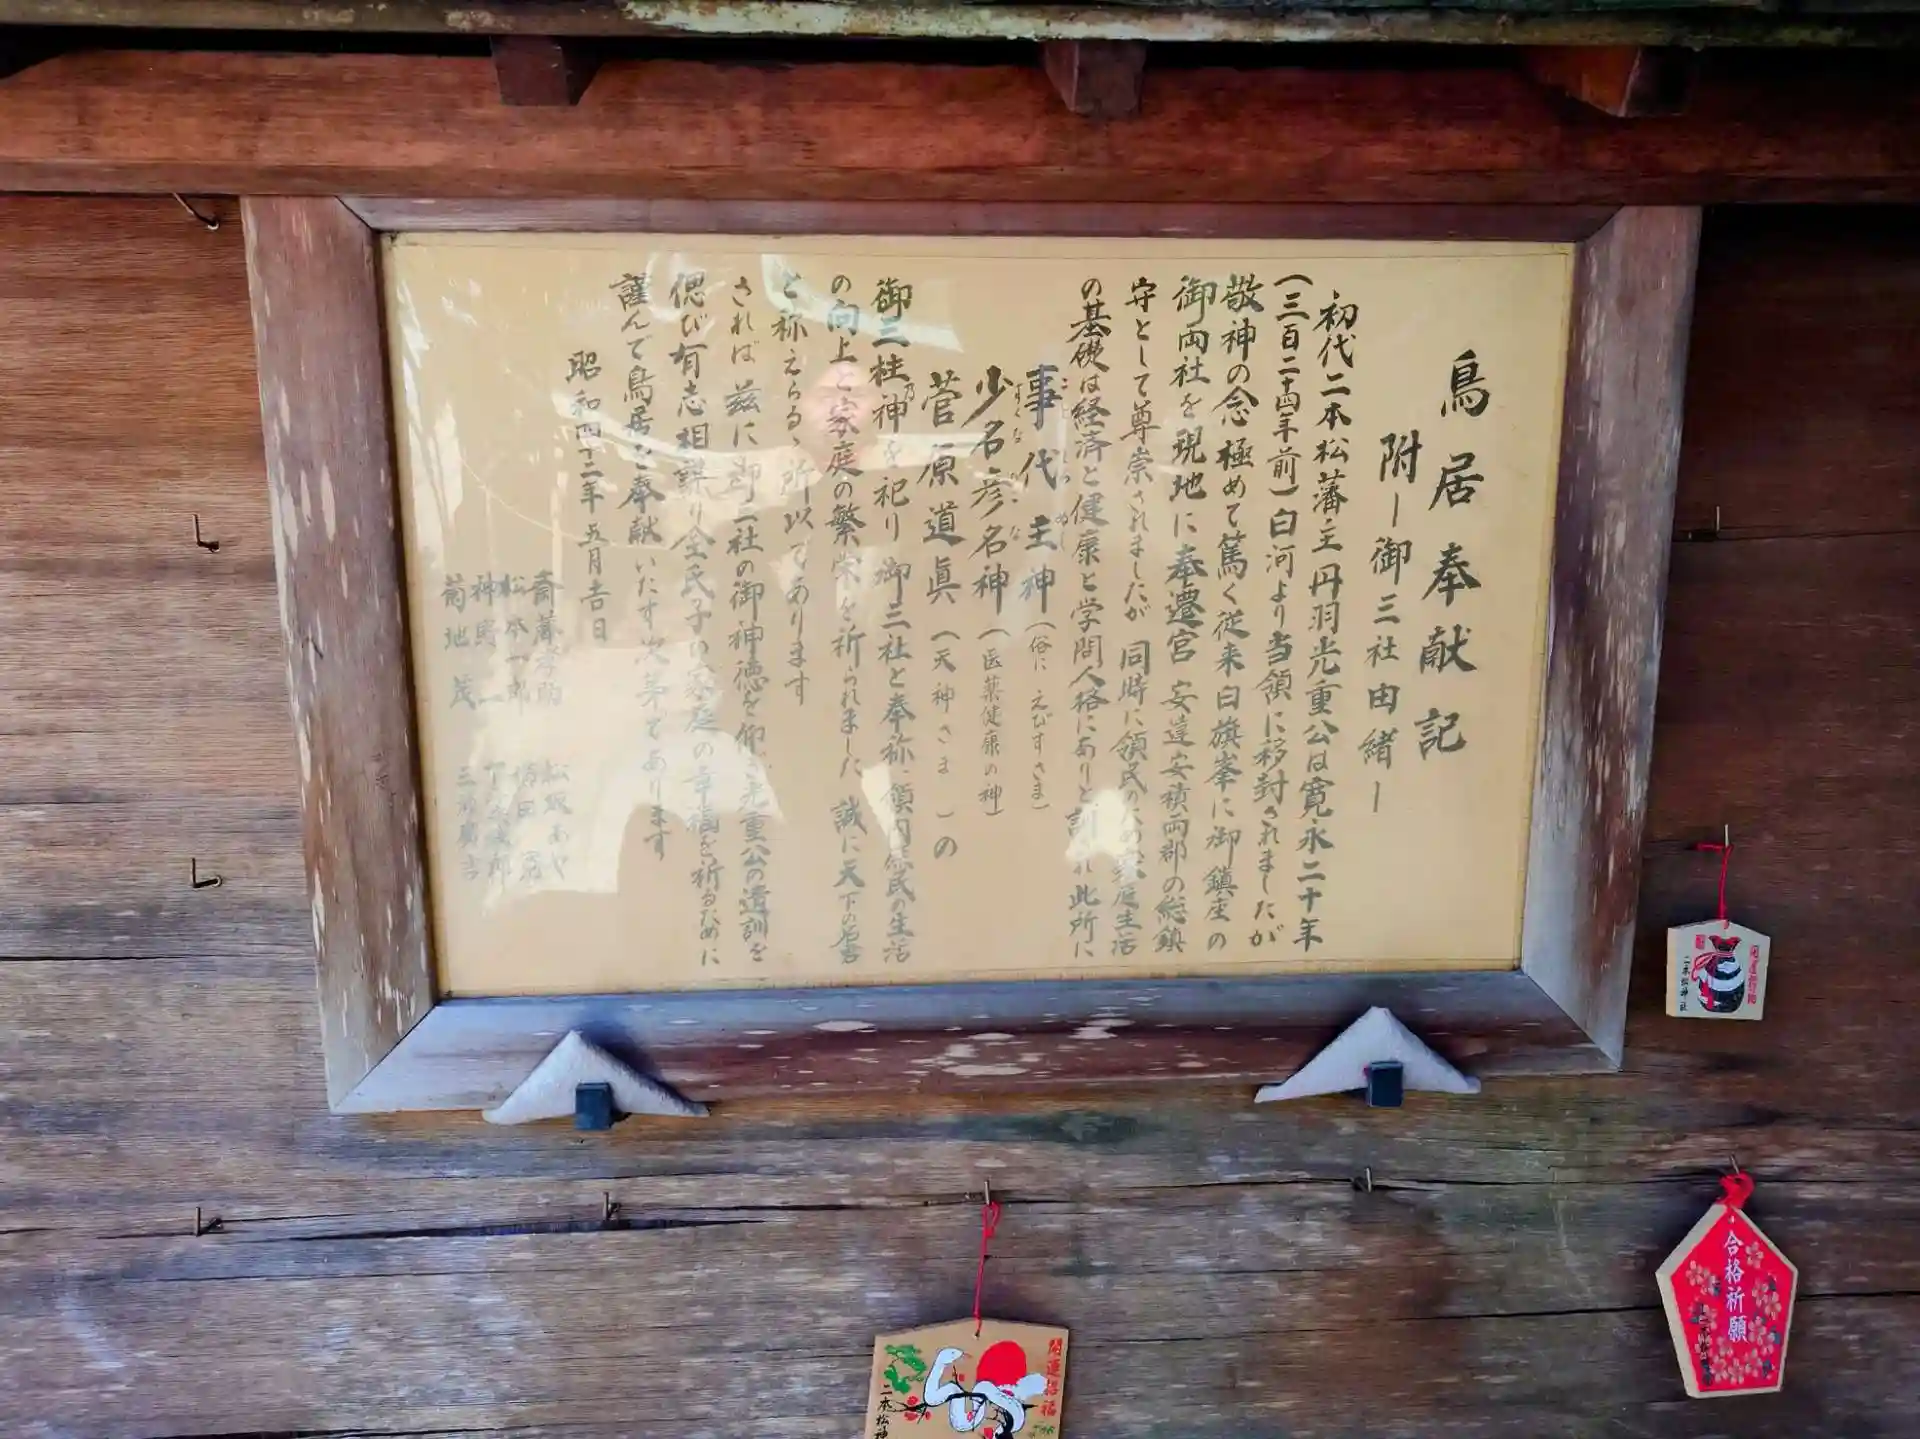 鳥居奉献記
附ー御三社由緒ー
初代二本松藩主丹羽光重公は寛永二十年
(三百二十四年前)白河より当領に移封されましたが
敬神の念極めて篤く従来白旗峯に御鎮座の
御両社を現地に奉遷宮 安達安積両郡の総鎮
守として尊崇されましたが 同時に領民のため家庭生活
の基礎は経済と健康と学問人格にありと訓され此所に
事代主神(俗に えびすさま)
ことしろぬし
少名彦名神(医薬健康の神)
すくなびこな
菅原道眞(天神さま)の
御三柱乃神を祀り御三社と奉称 領内庶民の生活
の向上と家庭の繁栄を祈られました 誠に天下の名君
と称えらるゝ所以であります
されば 茲に御三社の御神徳を仰ぎ光重公の遺訓を
偲び有志相謀り全氏子の家庭の幸福を祈るために
謹んで鳥居を奉献いたす次第であります
昭和四十二年五月吉日
松本一郎
菊地 茂
開運招福
二本松神社
合格祈願
開運招福
二本松神